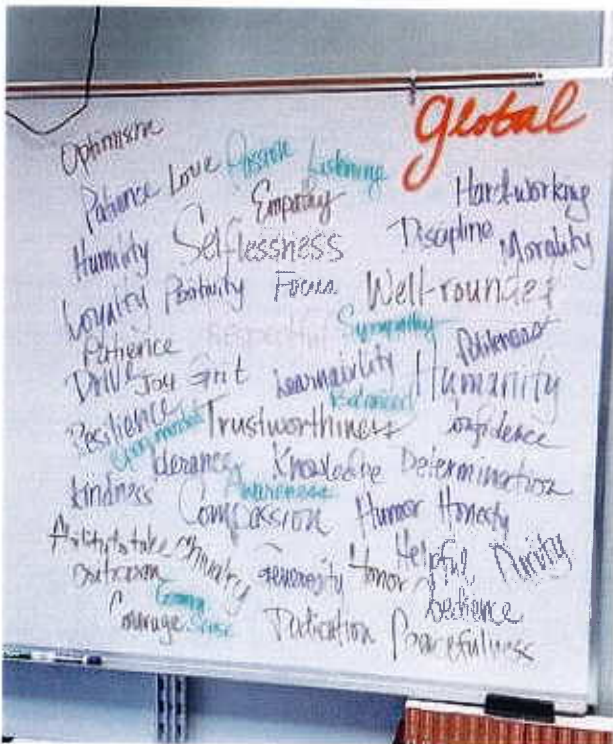 Global
Optimism
Patience Love Passion Listening
Empathy Hardworking
Humility Selflessness Discipline Morality
Loyalty Positivity Focus Well-rounded
Respectful Sympathy
Patience Politeness
Drive Joy Grit Learnability Humanity
Balanced
Resilience Trustworthiness Confidence
Open minded
Tolerance Knowledge Determination
Kindness Awareness
Compassion Humor Honesty
Ability to take Chivalry Helpful Purity
criticism Generosity Honor
Common Obedience
Courage Sense Dedication Peacefulness